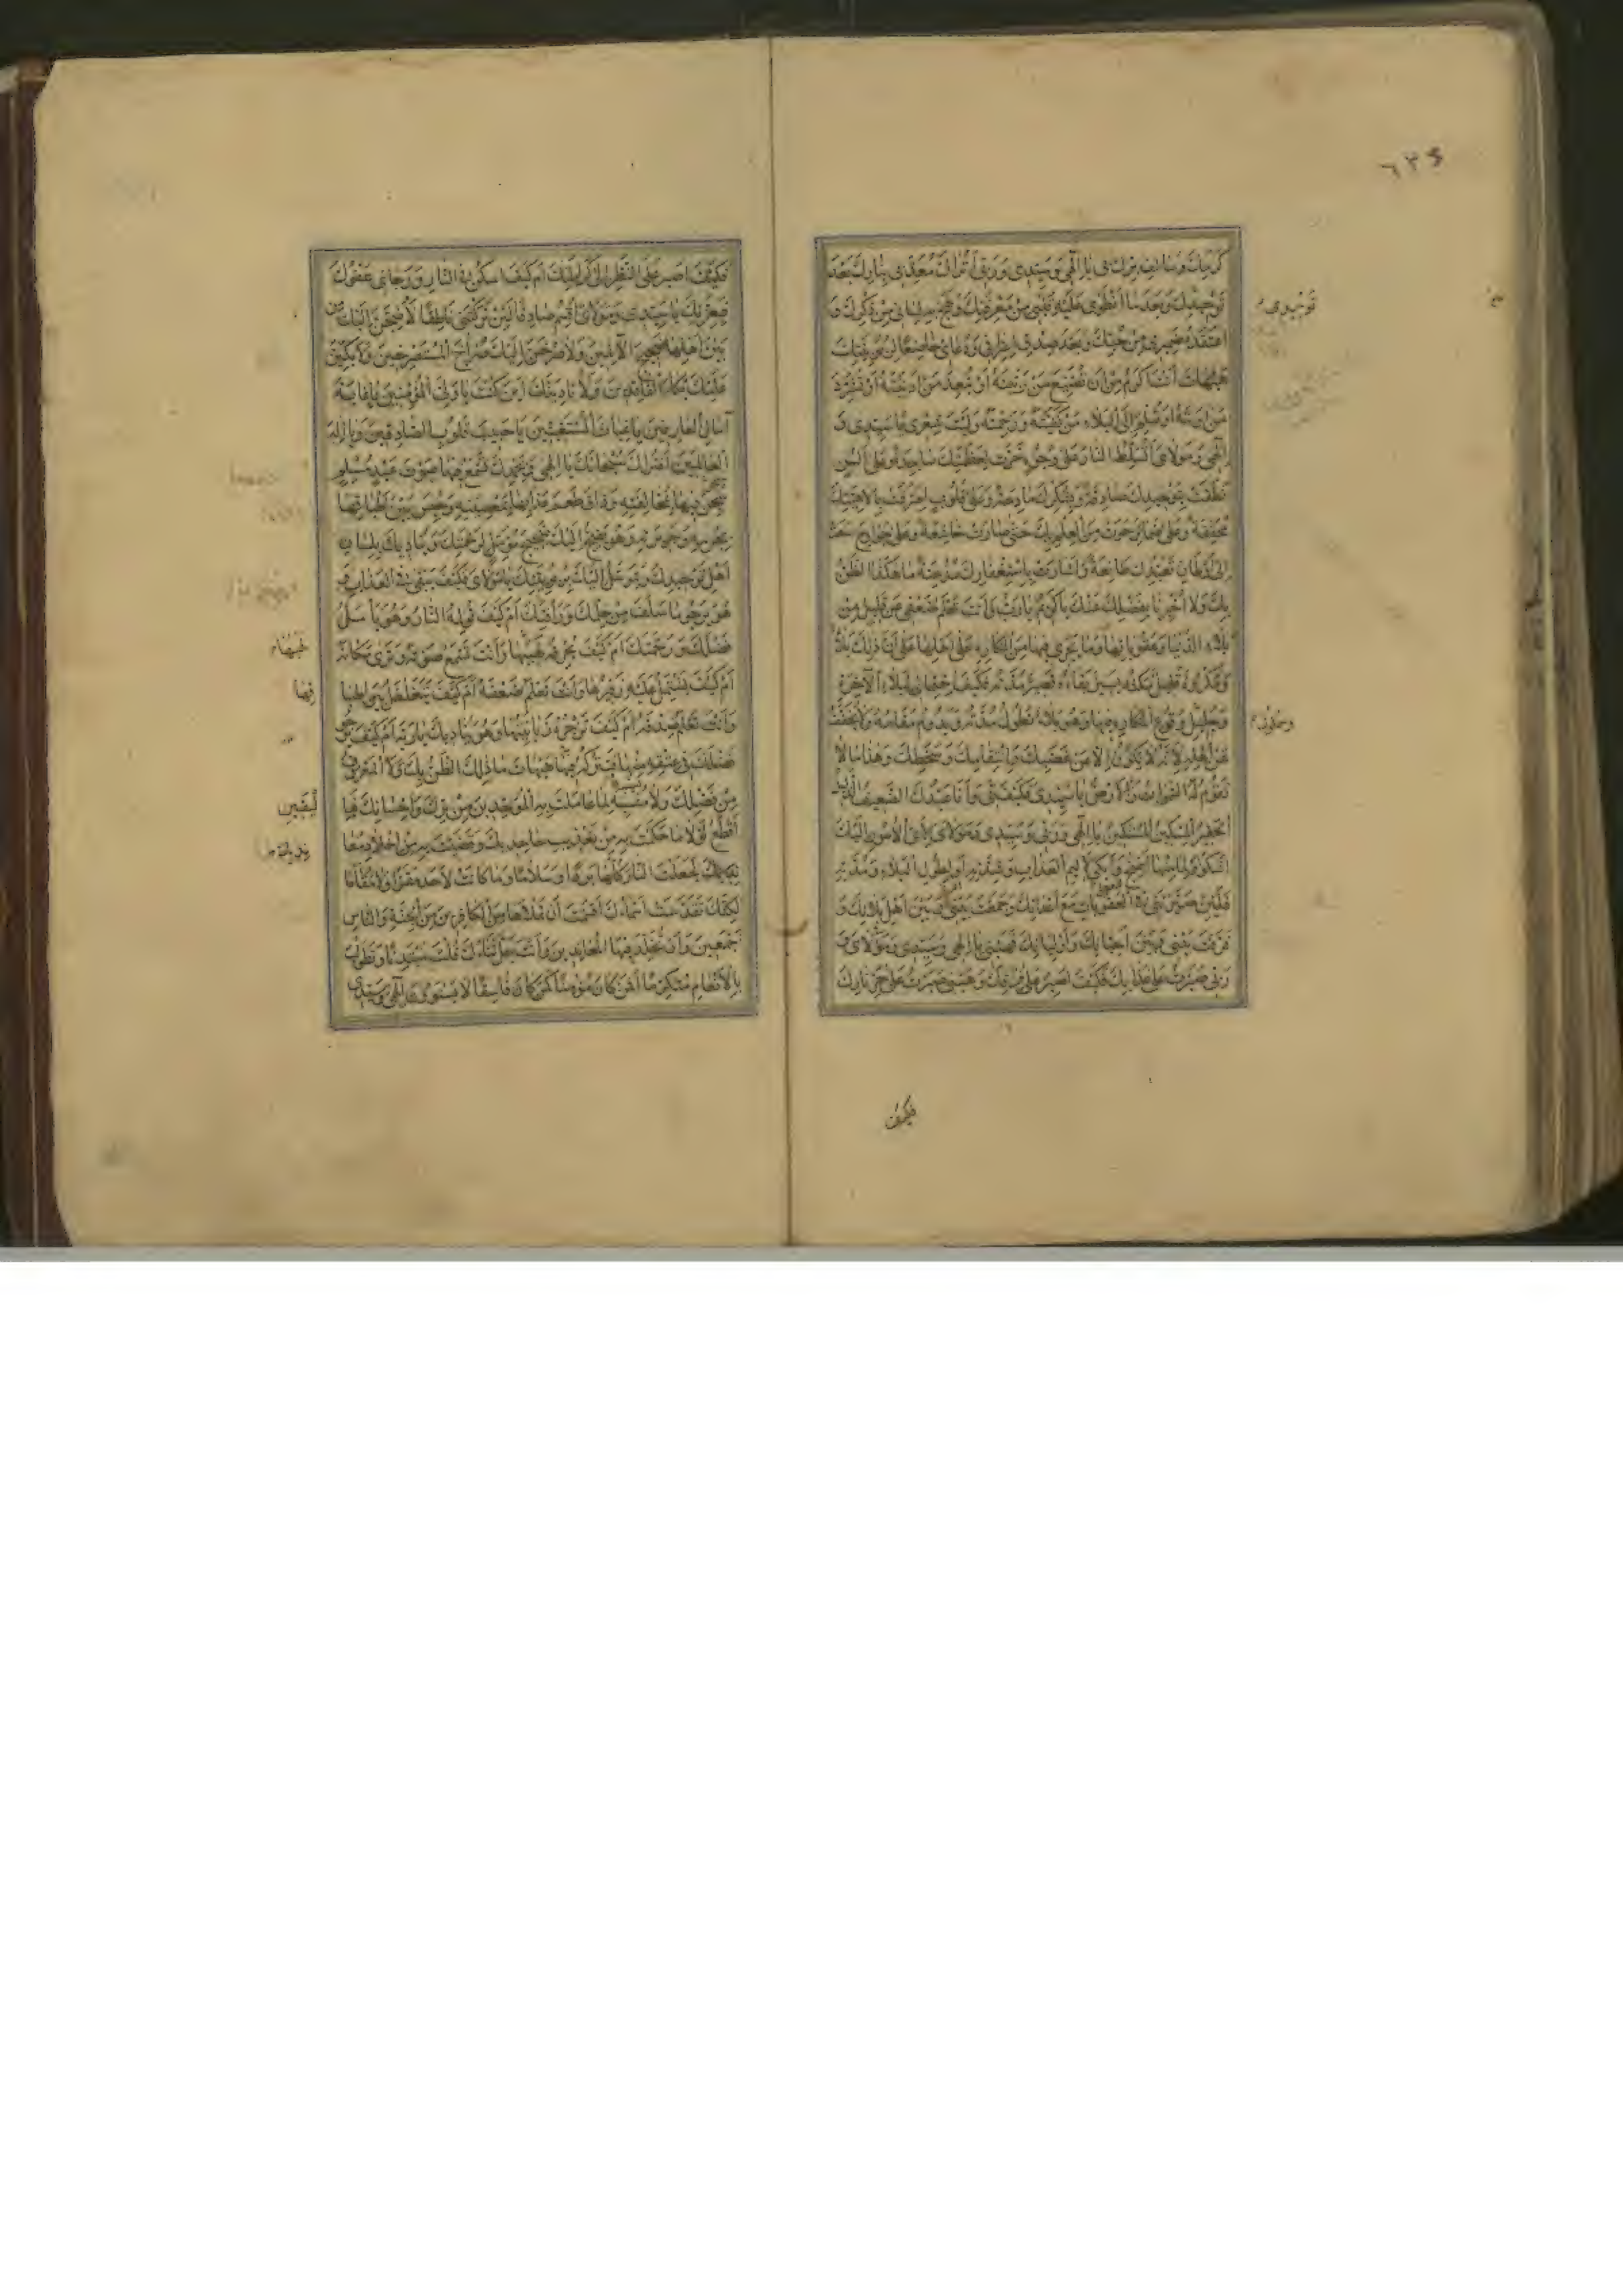 ٦٣٤
كَرَمِكَ وَسَالِفِ بِرِّكَ بِي يَا اِلٰهِي وَسَيِّدِي وَرَبِّي اَتُرَاكَ مُعَذِّبِي بِنَارِكَ بَعْدَ
تَوْحِيدِكَ وَبَعْدَ مَا انْطَوىٰ عَلَيْهِ قَلْبِي مِنْ مَعْرِفَتِكَ وَلَهِجَ بِهِ لِسَانِي مِنْ ذِكْرِكَ وَ
اعْتَقَدَهُ ضَمِيرِي مِنْ حُبِّكَ وَبَعْدَ صِدْقِ اعْتِرَافِي وَدُعَائِي خَاضِعًا لِرُبُوبِيَّتِكَ
هَيْهَاتَ اَنْتَ اَكْرَمُ مِنْ اَنْ تُضَيِّعَ مَنْ رَبَّيْتَهُ اَوْ تُبَعِّدَ مَنْ اَدْنَيْتَهُ اَوْ تُشَرِّدَ
مَنْ اٰوَيْتَهُ اَوْ تُسَلِّمَ اِلَى الْبَلَاءِ مَنْ كَفَيْتَهُ وَرَحِمْتَهُ وَلَيْتَ شِعْرِي يَا سَيِّدِي وَ
اِلٰهِي وَمَوْلَايَ اَتُسَلِّطُ النَّارَ عَلىٰ وُجُوهٍ خَرَّتْ لِعَظَمَتِكَ سَاجِدَةً وَعَلىٰ اَلْسُنٍ
نَطَقَتْ بِتَوْحِيدِكَ صَادِقَةً وَبِشُكْرِكَ مَادِحَةً وَعَلىٰ قُلُوبٍ اعْتَرَفَتْ بِاِلٰهِيَّتِكَ
مُحَقِّقَةً وَعَلىٰ ضَمَائِرَ حَوَتْ مِنَ الْعِلْمِ بِكَ حَتّىٰ صَارَتْ خَاشِعَةً وَعَلىٰ جَوَارِحَ سَعَتْ
اِلىٰ اَوْطَانِ تَعَبُّدِكَ طَائِعَةً وَاَشَارَتْ بِاسْتِغْفَارِكَ مُذْعِنَةً مَا هٰكَذَا الظَّنُّ
بِكَ وَلَا اُخْبِرْنَا بِفَضْلِكَ عَنْكَ يَا كَرِيمُ يَا رَبِّ وَاَنْتَ تَعْلَمُ ضَعْفِي عَنْ قَلِيلٍ مِنْ
بَلَاءِ الدُّنْيَا وَعُقُوبَاتِهَا وَمَا يَجْرِي فِيهَا مِنَ الْمَكَارِهِ عَلىٰ اَهْلِهَا عَلىٰ اَنَّ ذٰلِكَ بَلَاءٌ
وَمَكْرُوهٌ قَلِيلٌ مَكْثُهُ يَسِيرٌ بَقَاؤُهُ قَصِيرٌ مُدَّتُهُ فَكَيْفَ احْتِمَالِي لِبَلَاءِ الْآخِرَةِ
وَجَلِيلِ وُقُوعِ الْمَكَارِهِ فِيهَا وَهُوَ بَلَاءٌ تَطُولُ مُدَّتُهُ وَيَدُومُ مَقَامُهُ وَلَا يُخَفَّفُ
عَنْ اَهْلِهِ لِاَنَّهُ لَا يَكُونُ اِلَّا عَنْ غَضَبِكَ وَانْتِقَامِكَ وَسَخَطِكَ وَهٰذَا مَا لَا
تَقُومُ لَهُ السَّمٰوَاتُ وَالْاَرْضُ يَا سَيِّدِي فَكَيْفَ بِي وَاَنَا عَبْدُكَ الضَّعِيفُ الذَّلِيلُ
الْحَقِيرُ الْمِسْكِينُ الْمُسْتَكِينُ يَا اِلٰهِي وَرَبِّي وَسَيِّدِي وَمَوْلَايَ لِاَيِّ الْاُمُورِ اِلَيْكَ
اَشْكُو وَلِمَا مِنْهَا اَضِجُّ وَاَبْكِي لِاَلِيمِ الْعَذَابِ وَشِدَّتِهِ اَوْ لِطُولِ الْبَلَاءِ وَمُدَّتِهِ
فَلَئِنْ صَيَّرْتَنِي فِي الْعُقُوبَاتِ مَعَ اَعْدَائِكَ وَجَمَعْتَ بَيْنِي وَبَيْنَ اَهْلِ بَلَائِكَ وَ
فَرَّقْتَ بَيْنِي وَبَيْنَ اَحِبَّائِكَ وَاَوْلِيَائِكَ فَهَبْنِي يَا اِلٰهِي وَسَيِّدِي وَمَوْلَايَ وَ
رَبِّي صَبَرْتُ عَلىٰ عَذَابِكَ فَكَيْفَ اَصْبِرُ عَلىٰ فِرَاقِكَ وَهَبْنِي صَبَرْتُ عَلىٰ حَرِّ نَارِكَ
فكيف
فَكَيْفَ اَصْبِرُ عَنِ النَّظَرِ اِلىٰ كَرَامَتِكَ اَمْ كَيْفَ اَسْكُنُ فِي النَّارِ وَرَجَائِي عَفْوُكَ
فَبِعِزَّتِكَ يَا سَيِّدِي وَمَوْلَايَ اُقْسِمُ صَادِقًا لَئِنْ تَرَكْتَنِي نَاطِقًا لَاَضِجَّنَّ اِلَيْكَ
بَيْنَ اَهْلِهَا ضَجِيجَ الْآمِلِينَ وَلَاَصْرُخَنَّ اِلَيْكَ صُرَاخَ الْمُسْتَصْرِخِينَ وَلَاَبْكِيَنَّ
عَلَيْكَ بُكَاءَ الْفَاقِدِينَ وَلَاُنَادِيَنَّكَ اَيْنَ كُنْتَ يَا وَلِيَّ الْمُؤْمِنِينَ يَا غَايَةَ
اٰمَالِ الْعَارِفِينَ يَا غِيَاثَ الْمُسْتَغِيثِينَ يَا حَبِيبَ قُلُوبِ الصَّادِقِينَ وَيَا اِلٰهَ
الْعَالَمِينَ اَفَتُرَاكَ سُبْحَانَكَ يَا اِلٰهِي وَبِحَمْدِكَ تَسْمَعُ فِيهَا صَوْتَ عَبْدٍ مُسْلِمٍ
سُجِنَ فِيهَا بِمُخَالَفَتِهِ وَذَاقَ طَعْمَ عَذَابِهَا بِمَعْصِيَتِهِ وَحُبِسَ بَيْنَ اَطْبَاقِهَا
بِجُرْمِهِ وَجَرِيرَتِهِ وَهُوَ يَضِجُّ اِلَيْكَ ضَجِيجَ مُؤَمِّلٍ لِرَحْمَتِكَ وَيُنَادِيكَ بِلِسَانِ
اَهْلِ تَوْحِيدِكَ وَيَتَوَسَّلُ اِلَيْكَ بِرُبُوبِيَّتِكَ يَا مَوْلَايَ فَكَيْفَ يَبْقىٰ فِي الْعَذَابِ وَ
هُوَ يَرْجُو مَا سَلَفَ مِنْ حِلْمِكَ وَرَأْفَتِكَ اَمْ كَيْفَ تُؤْلِمُهُ النَّارُ وَهُوَ يَأْمُلُ
فَضْلَكَ وَرَحْمَتَكَ اَمْ كَيْفَ يُحْرِقُهُ لَهِيبُهَا وَاَنْتَ تَسْمَعُ صَوْتَهُ وَتَرىٰ مَكَانَهُ
اَمْ كَيْفَ يَشْتَمِلُ عَلَيْهِ زَفِيرُهَا وَاَنْتَ تَعْلَمُ ضَعْفَهُ اَمْ كَيْفَ يَتَغَلْغَلُ بَيْنَ اَطْبَاقِهَا
وَاَنْتَ تَعْلَمُ صِدْقَهُ اَمْ كَيْفَ تَزْجُرُهُ زَبَانِيَتُهَا وَهُوَ يُنَادِيكَ يَا رَبَّهُ اَمْ كَيْفَ يَرْجُو
فَضْلَكَ فِي عِتْقِهِ مِنْهَا فَتَتْرُكُهُ فِيهَا هَيْهَاتَ مَا ذٰلِكَ الظَّنُّ بِكَ وَلَا الْمَعْرُوفُ
مِنْ فَضْلِكَ وَلَا مُشْبِهٌ لِمَا عَامَلْتَ بِهِ الْمُوَحِّدِينَ مِنْ بِرِّكَ وَاِحْسَانِكَ فَبِالْيَقِينِ
اَقْطَعُ لَوْلَا مَا حَكَمْتَ بِهِ مِنْ تَعْذِيبِ جَاحِدِيكَ وَقَضَيْتَ بِهِ مِنْ اِخْلَادِ مُعَانِدِيكَ
لَجَعَلْتَ النَّارَ كُلَّهَا بَرْدًا وَسَلَامًا وَمَا كَانَتْ لِاَحَدٍ مَقَرًّا وَلَا مُقَامًا
لٰكِنَّكَ تَقَدَّسَتْ اَسْمَاؤُكَ اَقْسَمْتَ اَنْ تَمْلَاَهَا مِنَ الْكَافِرِينَ مِنَ الْجِنَّةِ وَالنَّاسِ
اَجْمَعِينَ وَاَنْ تُخَلِّدَ فِيهَا الْمُعَانِدِينَ وَاَنْتَ جَلَّ ثَنَاؤُكَ قُلْتَ مُبْتَدِئًا وَتَطَوَّلْتَ
بِالْاِنْعَامِ مُتَكَرِّمًا اَفَمَنْ كَانَ مُؤْمِنًا كَمَنْ كَانَ فَاسِقًا لَا يَسْتَوُونَ اِلٰهِي وَسَيِّدِي